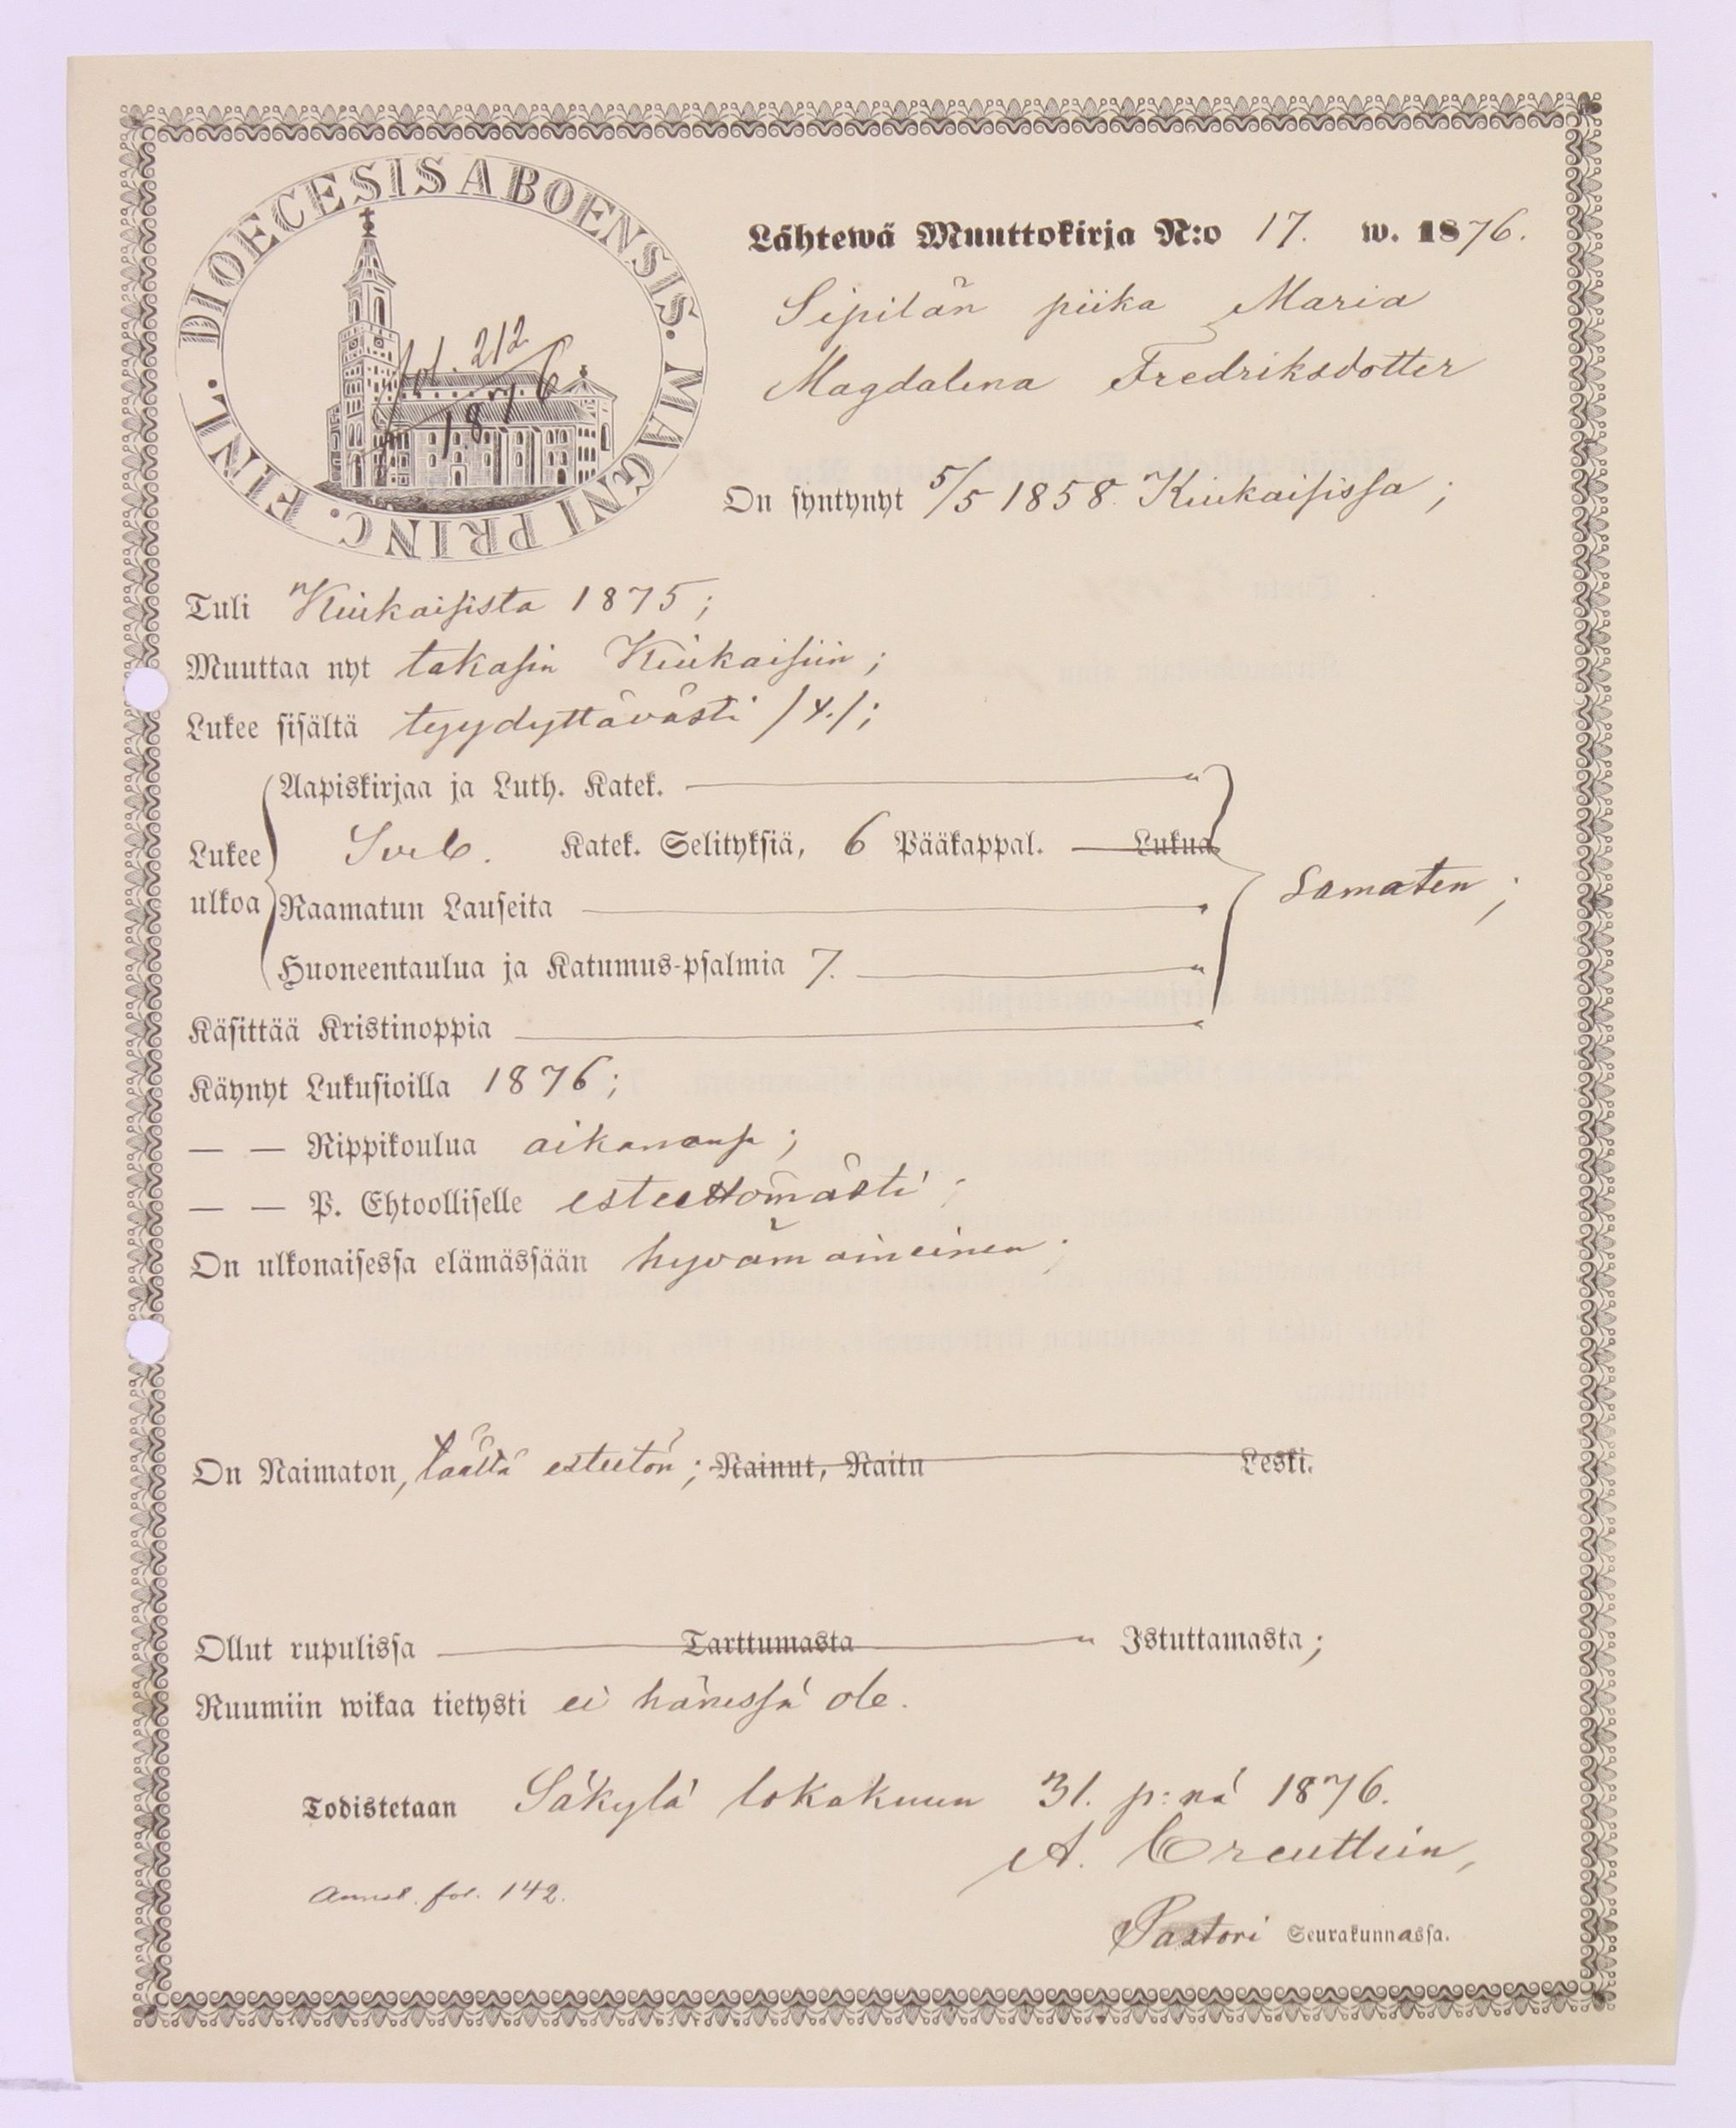 DIOECESIS ABOENSIS. MAGNI PRINC. FINL.
fol. 212
1876
Lähtewä Muuttokirja N:o 17. w. 1876.
Sipilän piika Maria
Magdalena Fredriksdotter
On syntynyt 5/5 1858. Kiukaisissa;
Tuli Kiukaisista 1875;
Muuttaa nyt takasin Kiukaisiin;
Lukee sisältä tyydyttävästi /y./;
Aapiskirjaa ja Luth. Katek.
Lukee ulkoa Sveb. Katek. Selityksiä, 6 Pääkappal. Lukua
Raamatun Lauseita
Huoneentaulua ja Katumus-psalmia 7.
samaten;
Käsittää Kristinoppia
Käynyt Lukusioilla 1876;
— — Rippikoulua aikanansa;
— — P. Ehtoolliselle esteettömästi;
On ulkonaisessa elämässään hyvämaineinen;
On Naimaton, täältä esteetön; Nainut, Naitu Leski.
Ollut rupulissa Tarttumasta Istuttamasta;
Ruumiin wikaa tietysti ei hänessä ole.
Todistetaan Säkylä lokakuun 31. p:nä 1876.
A. Creutlein,
Annot. fol. 142.
Pastori Seurakunnassa.